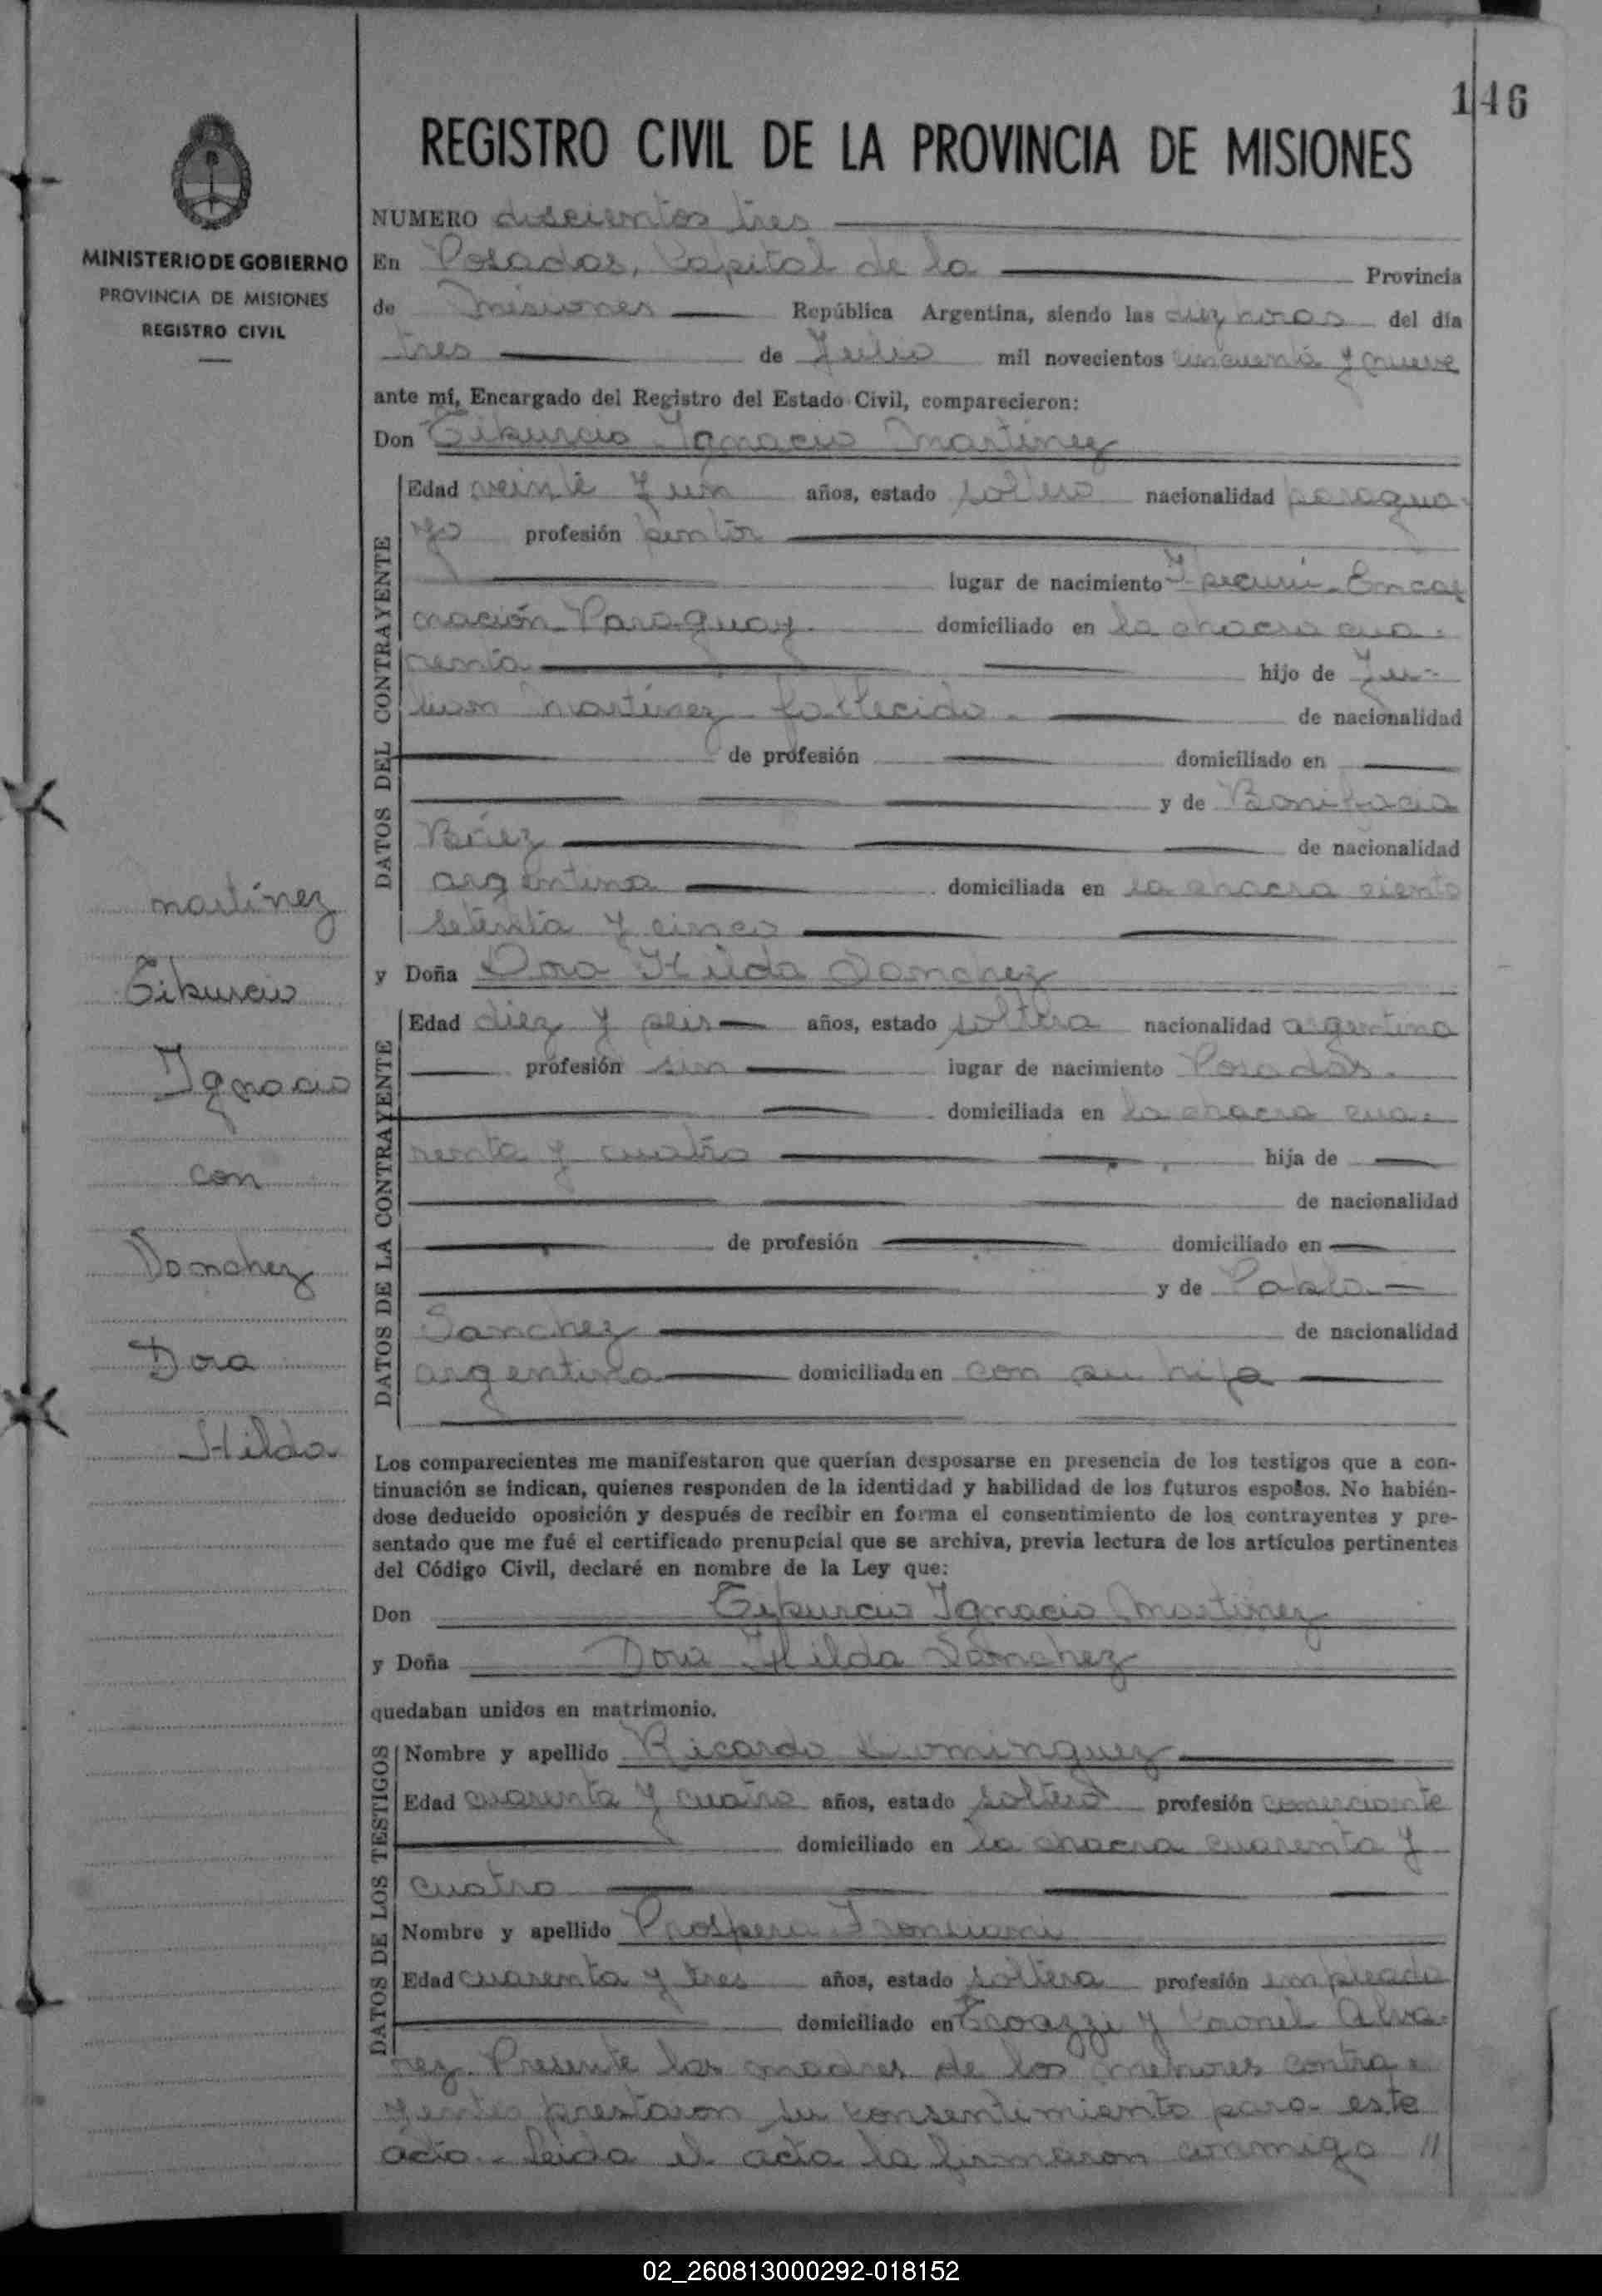 146
REGISTRO CIVIL DE LA PROVINCIA DE MISIONES
MINISTERIO DE GOBIERNO
PROVINCIA DE MISIONES
REGISTRO CIVIL
NUMERO doscientos tres
En Posadas, Capital de la Provincia
de Misiones República Argentina, siendo las diez horas del día
tres de Julio mil novecientos cincuenta y nueve
ante mí, Encargado del Registro del Estado Civil, comparecieron:
Don Tiburcio Ignacio Martinez
DATOS DEL CONTRAYENTE
Edad veinte y un años, estado soltero nacionalidad paragua-
yo profesión pintor
lugar de nacimiento Encar
nación Paraguay domiciliado en la chacra cua-
renta hijo de Ju-
lian Martinez fallecido. de nacionalidad
de profesión domiciliado en
y de Bonifacia
Báez de nacionalidad
argentina domiciliada en la chacra ciento
setenta y cinco
y Doña Dora Hilda Sanchez
DATOS DE LA CONTRAYENTE
Edad diez y seis años, estado soltera nacionalidad argentina
profesión sin lugar de nacimiento Posadas.
domiciliada en la chacra cua-
renta y cuatro hija de
de nacionalidad
de profesión domiciliado en
y de Pabla
Sanchez de nacionalidad
argentina domiciliada en con su hija
Los comparecientes me manifestaron que querían desposarse en presencia de los testigos que a con-
tinuación se indican, quienes responden de la identidad y habilidad de los futuros esposos. No habién-
dose deducido oposición y después de recibir en forma el consentimiento de los contrayentes y pre-
sentado que me fué el certificado prenupcial que se archiva, previa lectura de los artículos pertinentes
del Código Civil, declaré en nombre de la Ley que:
Don Tiburcio Ignacio Martinez
y Doña Dora Hilda Sanchez
quedaban unidos en matrimonio.
DATOS DE LOS TESTIGOS
Nombre y apellido Ricardo Dominguez
Edad cuarenta y cuatro años, estado soltero profesión comerciante
domiciliado en la chacra cuarenta y
cuatro
Nombre y apellido Prospera
Edad cuarenta y tres años, estado soltera profesión empleada
domiciliado en y Coronel Alva-
rez. Presente las madres de los menores contra-
yentes prestaron su consentimiento para este
acto. Leida el acta la firmaron conmigo //
Martínez
Tiburcio
Ignacio
con
Sanchez
Dora
Hilda
02_260813000292-018152